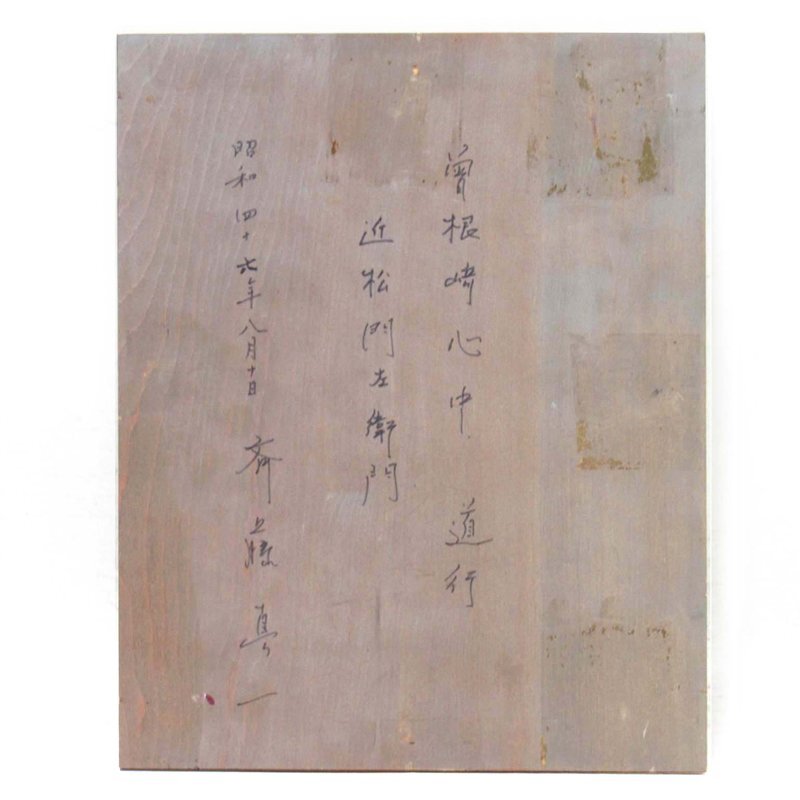 曽根崎心中 道行
近松門左衛門
昭和四十六年八月十日 斎藤真一